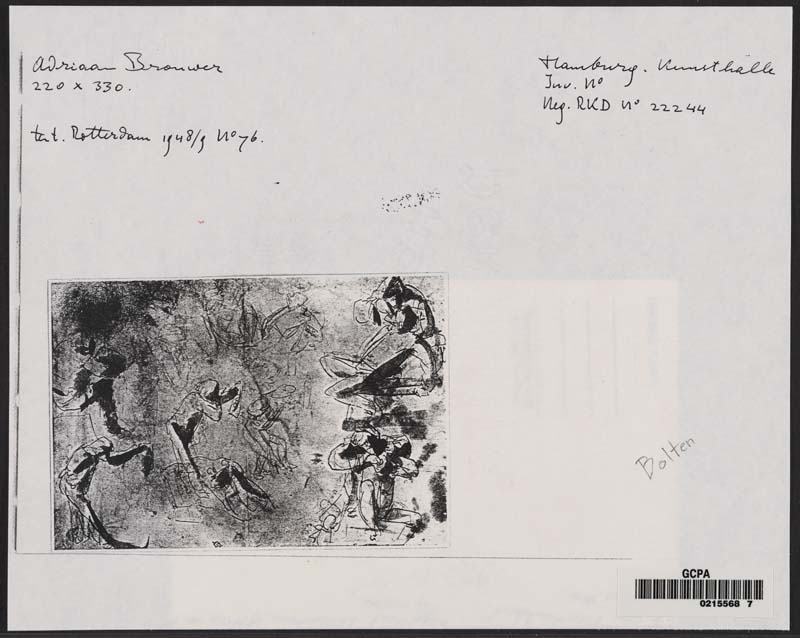 Adriaan Brouwer
220 x 330.
tent. Rotterdam 1948/9 No 76.
Hamburg. Kunsthalle
Inv. No
Neg. RKD No 22244
Bolten
GCPA
0215568 7